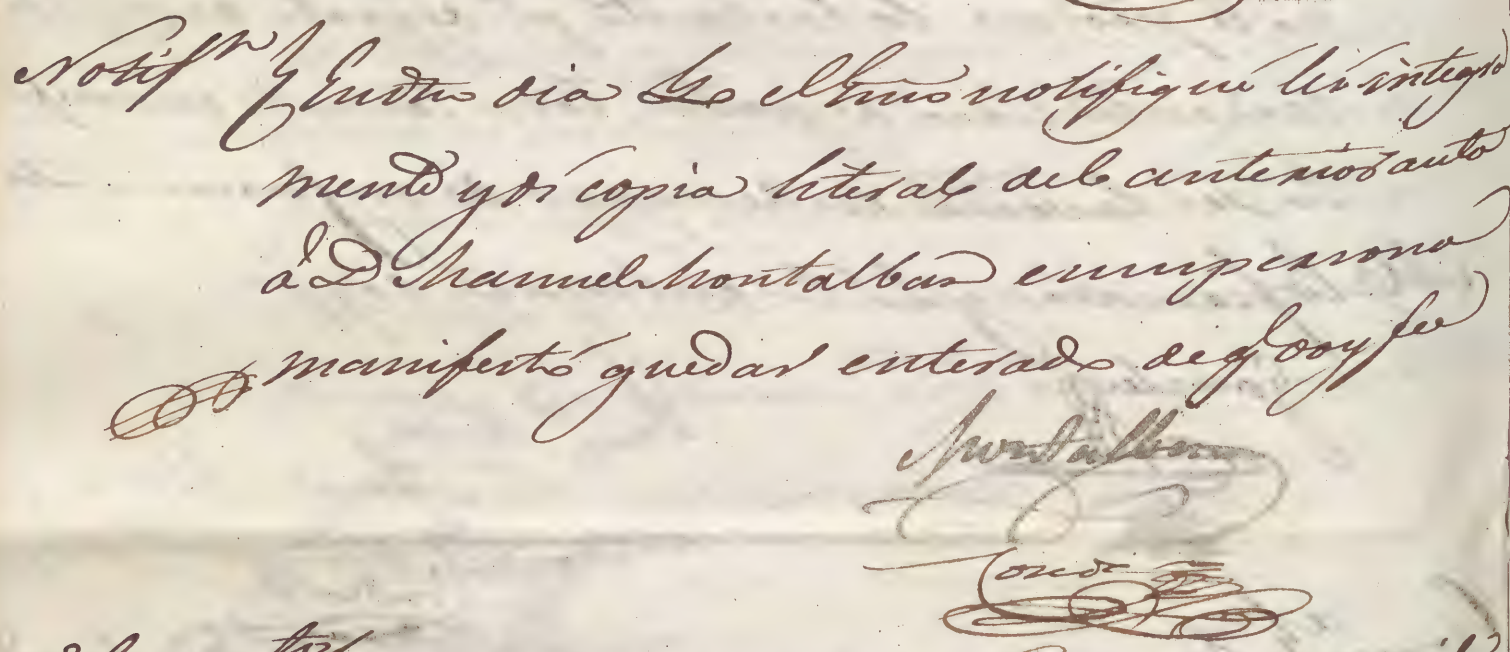 Notifn En otro dia Yo el Esno notifiqué lei integra
mente y di copia literal del anterior auto
á D Manuel Montalban en su persona
manifestó quedar enterado de q doy fe
Montalban